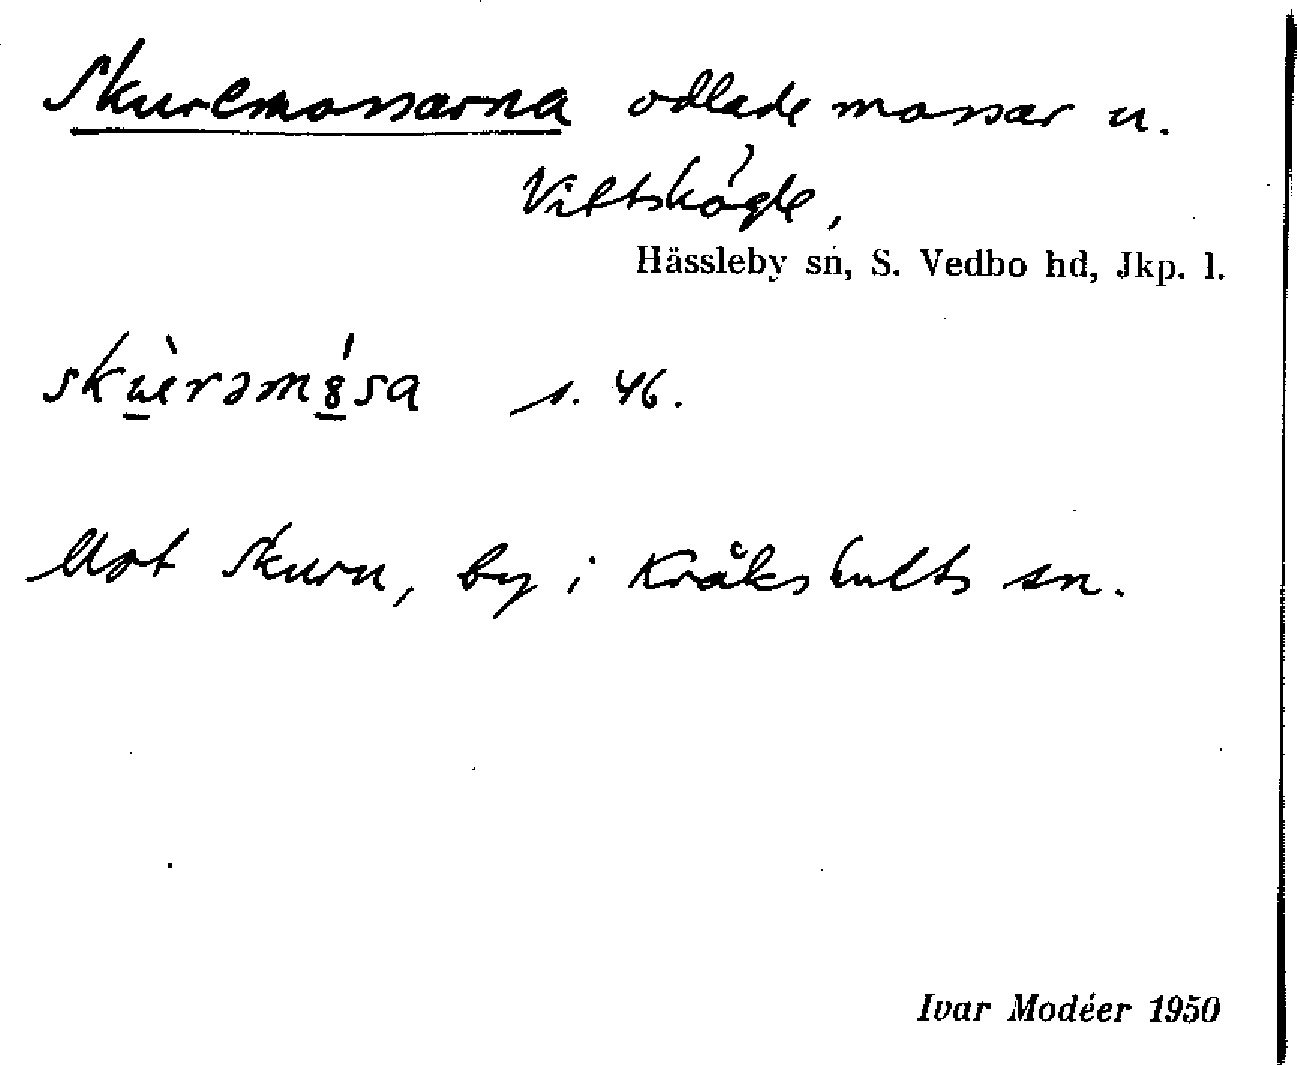 Skuremossarna odlade mossar u.
Vittskögle,
Hässleby sn, S. Vedbo hd, Jkp. l.
skùrəmósa s. 46.
Mot Skuru, by i Kråkshults sn.
Ivar Modéer 1950